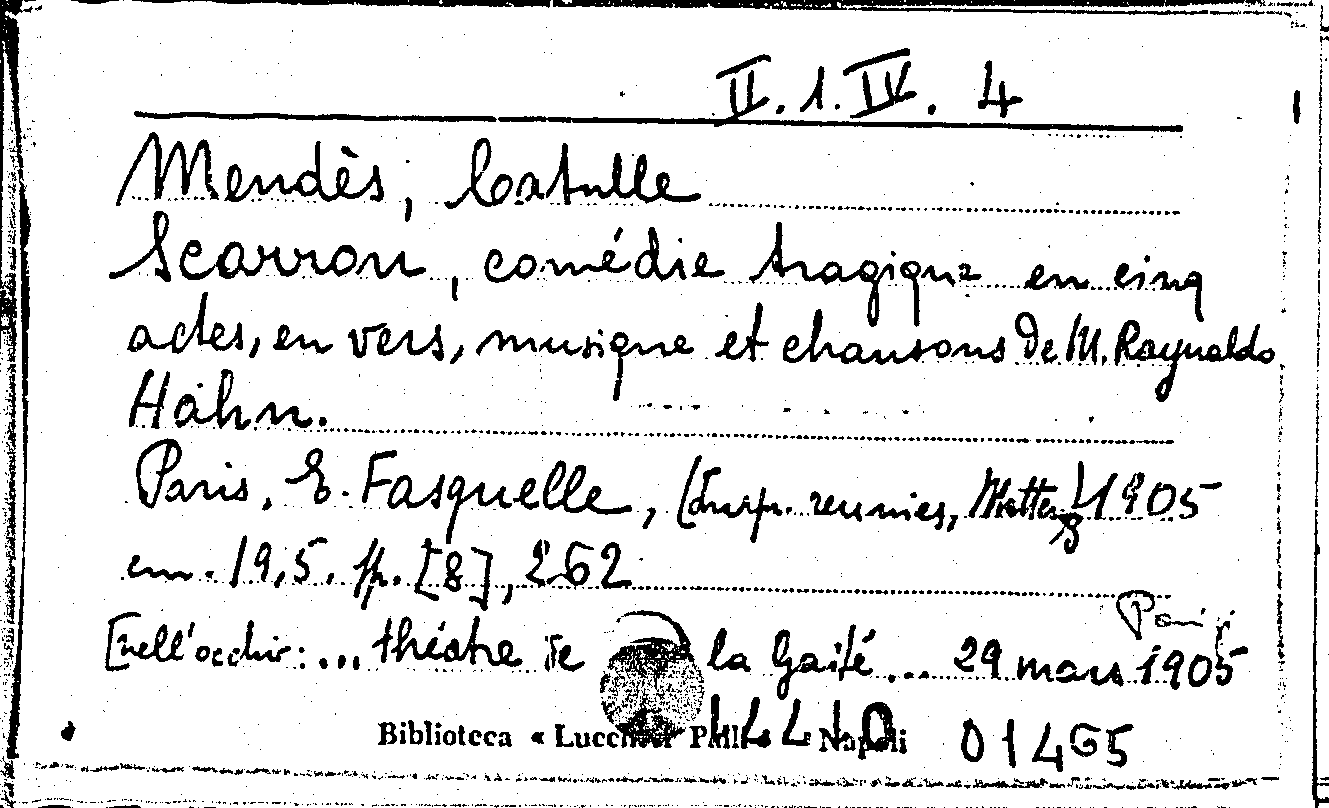 II. 1. IV. 4
Mendès, Catulle
Scarron, comédie tragique en cinq
actes, en vers, musique et chansons de M. Raynaldo
Hahn.
Paris, E. Fasquelle, (Imp. reunies, Motteroz) 1905
cm. 19,5. pp. [8], 262
Paris
[nell'occhio: ... théatre de la Gaité ... 29 mars 1905
Biblioteca « Lucchesi Palli » Napoli 01465